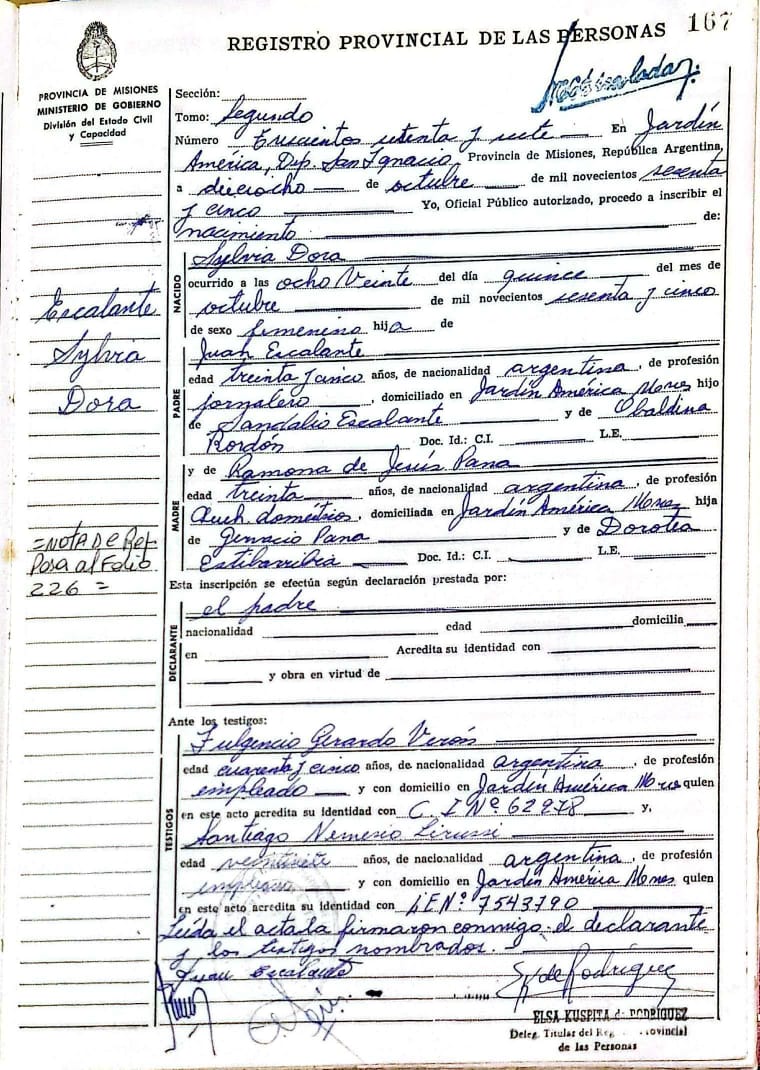 167
REGISTRO PROVINCIAL DE LAS PERSONAS
PROVINCIA DE MISIONES
MINISTERIO DE GOBIERNO
División del Estado Civil
y Capacidad
Sección:
Tomo: Segundo
Número Trescientos setenta y siete En Jardín
América, Dep. San Ignacio, Provincia de Misiones, República Argentina,
a dieciocho de octubre de mil novecientos sesenta
y cinco Yo, Oficial Público autorizado, procedo a inscribir el
nacimiento de:
NACIDO
Sylvia Dora
ocurrido a las ocho Veinte del día quince del mes de
octubre de mil novecientos sesenta y cinco
de sexo femenino hija de
Escalante
Sylvia
Dora
PADRE
Juan Escalante
edad treinta y cinco años, de nacionalidad argentina, de profesión
jornalero, domiciliado en Jardín América Mnes hijo
de Sandalio Escalante y de Obaldina
Rordón Doc. Id.: C.I. L.E.
MADRE
y de Ramona de Jesús Pana
edad treinta años, de nacionalidad argentina, de profesión
Queh. domésticos, domiciliada en Jardín América Mnes hija
de Genacio Pana y de Dorotea
Estibarribia Doc. Id.: C.I. L.E.
=NOTA De Ref
Pasa al Folio
226 =
Esta inscripción se efectúa según declaración prestada por:
DECLARANTE
el padre
nacionalidad edad domicilia
en Acredita su identidad con
y obra en virtud de
Ante los testigos:
TESTIGOS
Fulgencio Gerardo Verón
edad cuarenta y cinco años, de nacionalidad argentina, de profesión
empleado y con domicilio en Jardín América Mnes quien
en este acto acredita su identidad con C. I Nº 62978 y,
Santiago Nemesio Lirussi
edad veintisiete años, de nacionalidad argentina, de profesión
empleado y con domicilio en Jardín América Mnes quien
en este acto acredita su identidad con LE Nº 7543790
Leída el acta la firmaron conmigo el declarante
y los testigos nombrados.
Juan Escalante
E K de Rodríguez
ELSA KUSPITA de RODRIGUEZ
Deleg. Titular del Reg. Provincial
de las Personas